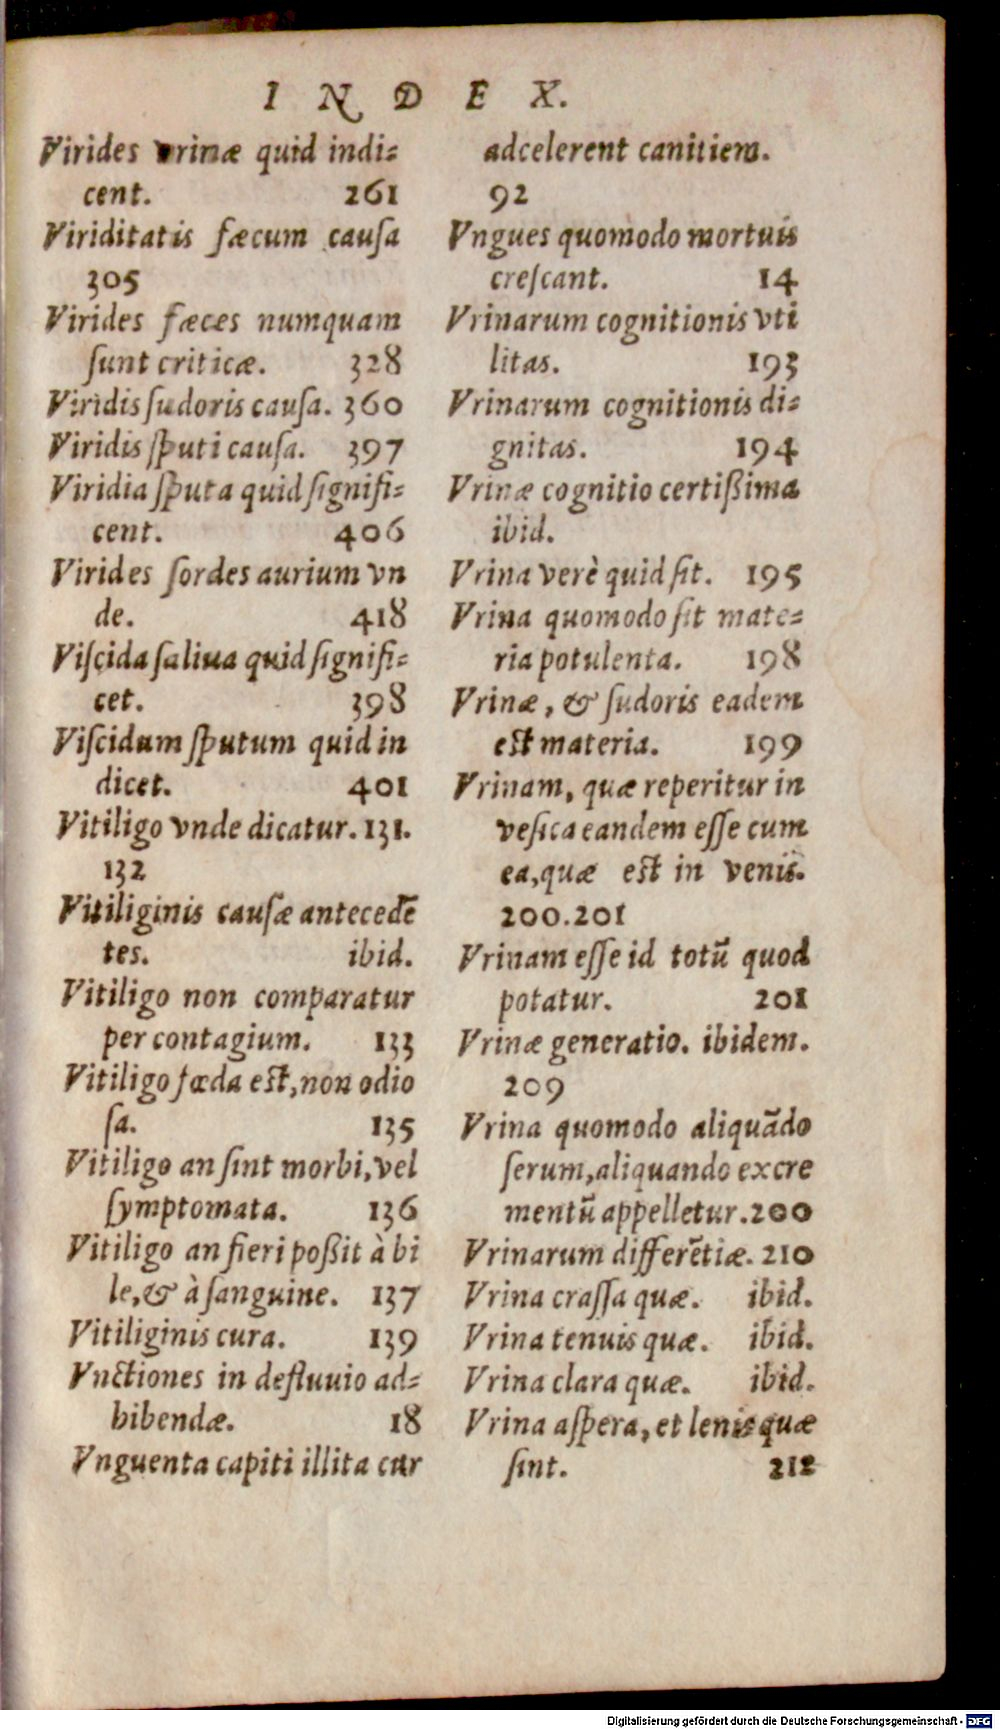 INDEX.
Virides vrinæ quid indi=
cent. 261
Viriditatis fæcum cauſa
305
Virides fæces numquam
ſunt criticæ. 328
Viridis ſudoris cauſa. 360
Viridis ſputi cauſa. 397
Viridia ſputa quid ſignifi=
cent. 406
Virides ſordes aurium vn
de. 418
Viſcida ſaliua quid ſignifi=
cet. 398
Viſcidum ſputum quid in
dicet. 401
Vitiligo vnde dicatur. 131.
132
Vitiliginis cauſæ antecedẽ
tes. ibid.
Vitiligo non comparatur
per contagium. 133
Vitiligo fœda eſt, non odio
ſa. 135
Vitiligo an ſint morbi, vel
ſymptomata. 136
Vitiligo an fieri poßit à bi
le, & à ſanguine. 137
Vitiliginis cura. 139
Vnctiones in defluuio ad=
bibendæ. 18
Vnguenta capiti illita cur
adcelerent canitiem.
92
Vngues quomodo mortuis
creſcant. 14
Vrinarum cognitionis vti
litas. 193
Vrinarum cognitionis di=
gnitas. 194
Vrinæ cognitio certißima
ibid.
Vrina verè quid ſit. 195
Vrina quomodo ſit mate=
ria potulenta. 198
Vrinæ, & ſudoris eadem
eſt materia. 199
Vrinam, quæ reperitur in
veſica eandem eſſe cum
ea, quæ eſt in venis.
200.201
Vrinam eſſe id totũ quod
potatur. 201
Vrinæ generatio. ibidem.
209
Vrina quomodo aliquãdo
ſerum, aliquando excre
mentũ appelletur. 200
Vrinarum differẽtiæ. 210
Vrina craſſa quæ. ibid.
Vrina tenuis quæ. ibid.
Vrina clara quæ. ibid.
Vrina aſpera, et lenis quæ
ſint. 212
Digitalisierung gefördert durch die Deutsche Forschungsgemeinschaft - DFG